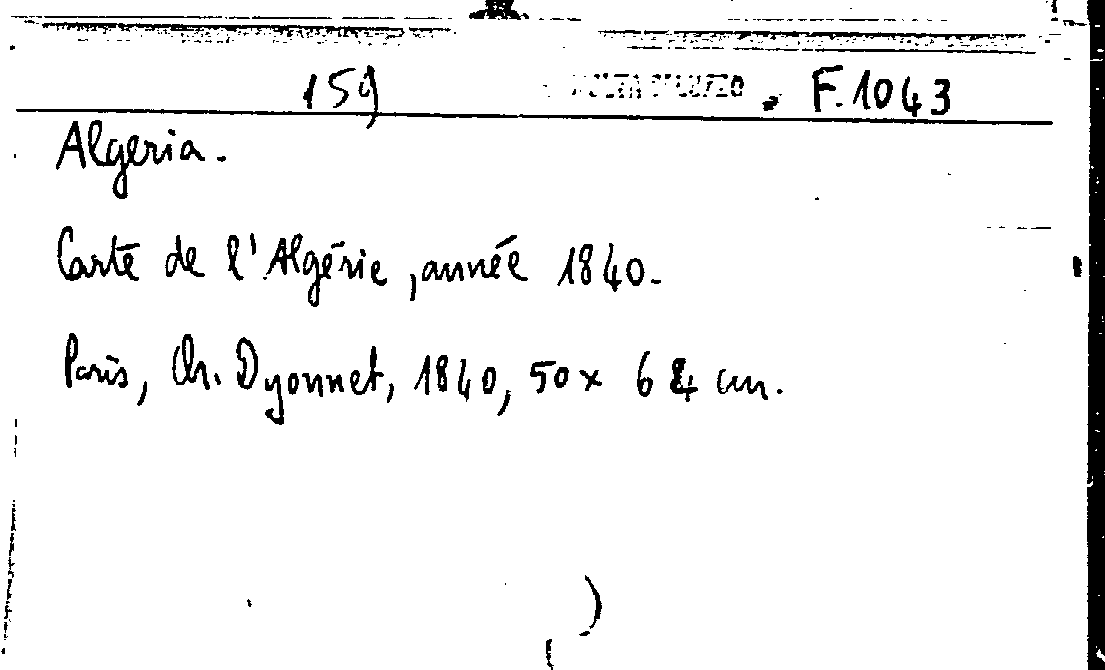 159 F.1043
Algeria.
Carte de l'Algérie, année 1840.
Paris, Ch. Dyonnet, 1840, 50 x 64 cm.